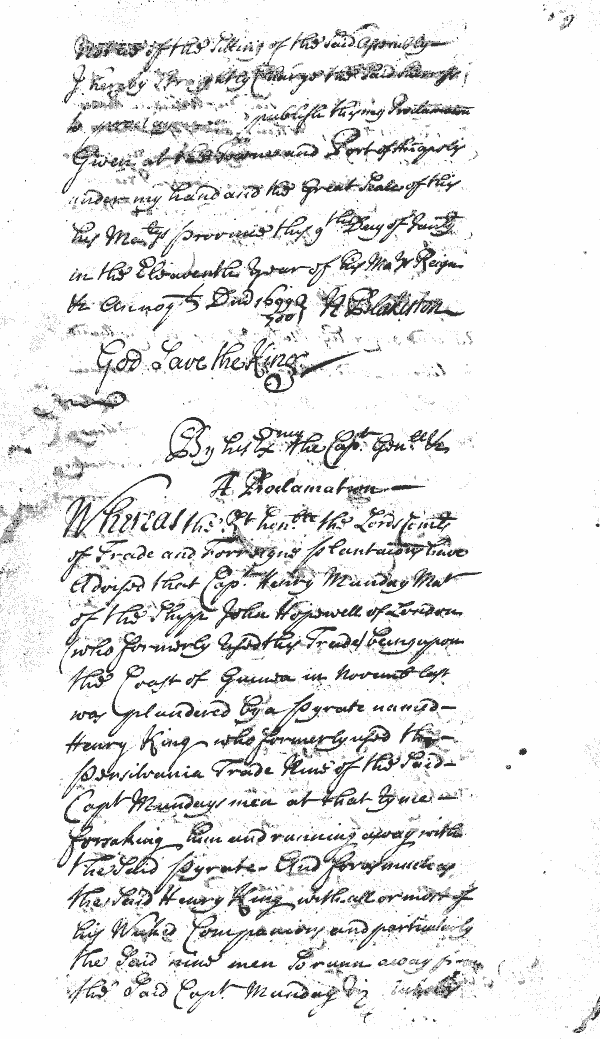 Notice of the Sitting of the said Assembly
I hereby Streightly Charge the said Sherriffs
to publish this my Proclamation
Given at the Towne and Port of Annapolis
under my hand and the Great Seale of this
his Matys province this 9th Day of Janry
in the Eleaventh Year of his Matys Reign
&c Annoq Dni 1699/700 N Blakiston
God Save the King
By his Exmy the Capt Genll &c
A Proclamation
Whereas the Rt honble the Lords Comrs
of Trade and Forreigne plantacions have
Advised that Capt Henry Munday Mar
of the Shipp John Hopewell of London
who formerly Used this Trade being upon
the Coast of Guinea in Novembr last
was plundered by a pyrate named
Henry King who formerly used the
Pensilvania Trade Nine of the Said
Capt Mundays men at that tyme
forsaking him and running away with
the Said pyrate And forasmuch as
the Said Henry King with all or most of
his Wicked Companions and particularly
the Said nine men So runn away from
the Said Capt Munday Viz